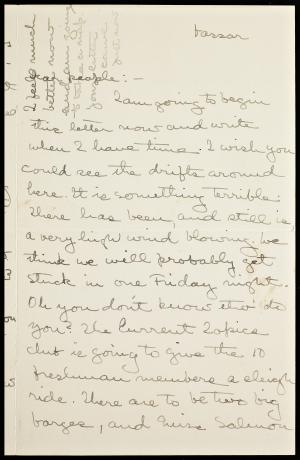 Vassar
Dear people:-
I am going to begin
this letter now and write
when I have time. I wish you
could see the drifts around
here. It is something terrible.
There has been, and still is,
a very high wind blowing. We
think we will probably get
stuck in one Friday night.
Oh you don't know it do
you? The Current Topics
club is going to give the 10
freshman members a sleigh
ride. There are to be two big
barges, and Miss Salmon
I feel much
better now
and am going
to take a nap